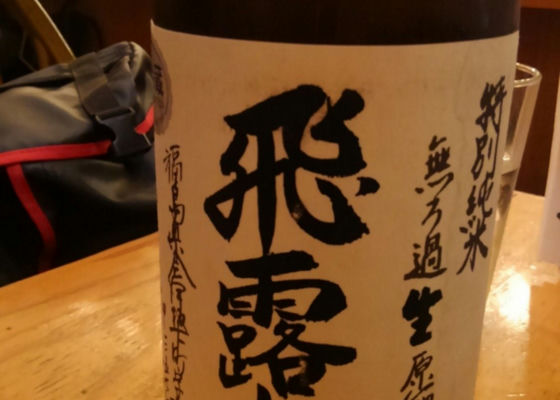 特別純米
無ろ過生原
飛露
福島県会津